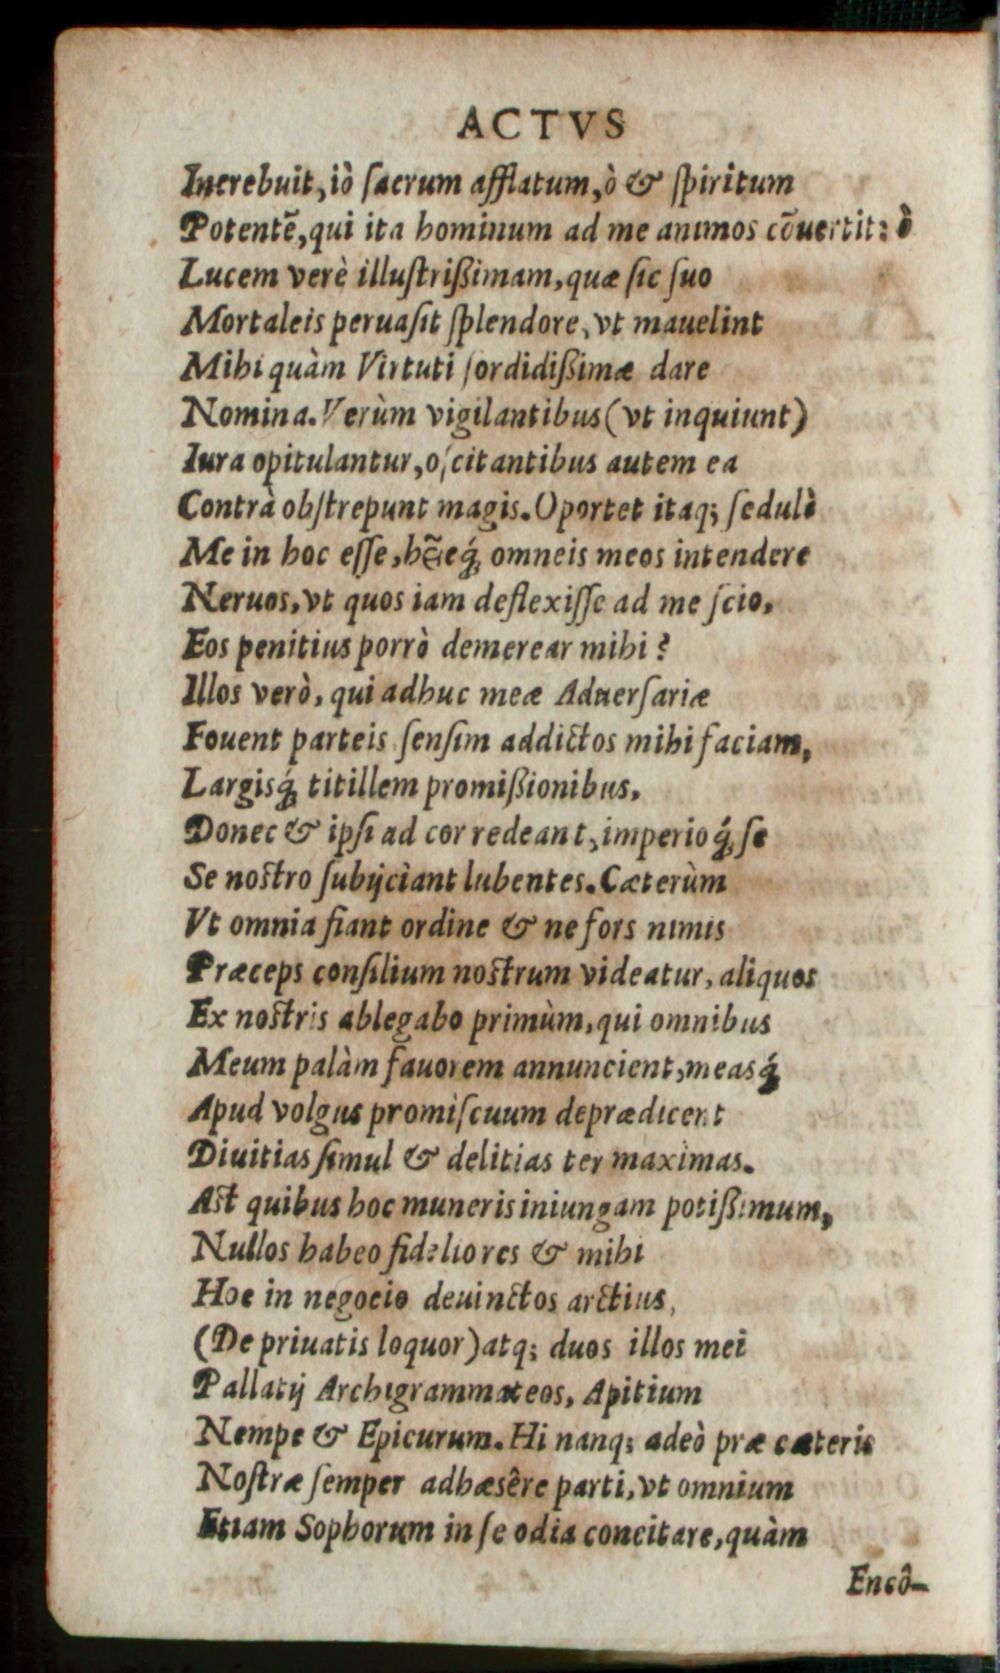 ACTVS
Increbuit, iò ſacrum afflatum, ò & ſpiritum
Potentē, qui ita hominum ad me animos cōuertit: ò
Lucem verè illuſtrißimam, quæ ſic ſuo
Mortaleis peruaſit ſplendore, vt mauelint
Mihi quàm Virtuti ſordidißimæ dare
Nomina. Verùm vigilantibus (vt inquiunt)
Iura opitulantur, oſcitantibus autem ea
Contrà obſtrepunt magis. Oportet itaq; ſedulò
Me in hoc eſſe, omneis meos intendere
Neruos, vt quos iam deflexiſſe ad me ſcio,
Eos penitius porrò demerear mihi?
Illos verò, qui adhuc meæ Aduerſariæ
Fouent parteis ſenſim addictos mihi faciam,
Largisq́; titillem promißionibus,
Donec & ipſi ad cor redeant, imperioq́; ſe
Se noſtro ſubijciant lubentes. Cæterùm
Vt omnia fiant ordine & ne fors nimis
Præceps conſilium noſtrum videatur, aliquos
Ex noſtris ablegabo primùm, qui omnibus
Meum palàm fauorem annuncient, measq́;
Apud volgus promiſcuum deprædicent
Diuitias ſimul & delitias ter maximas.
Aſt quibus hoc muneris iniungam potißimum,
Nullos habeo fideliores & mihi
Hoc in negocio deuinctos arctius,
(De priuatis loquor) atq; duos illos mei
Pallatij Archigrammateos, Apitium
Nempe & Epicurum. Hi nanq; adeò præ cæteris
Noſtræ ſemper adhæsêre parti, vt omnium
Etiam Sophorum in ſe odia concitare, quàm
Encô-